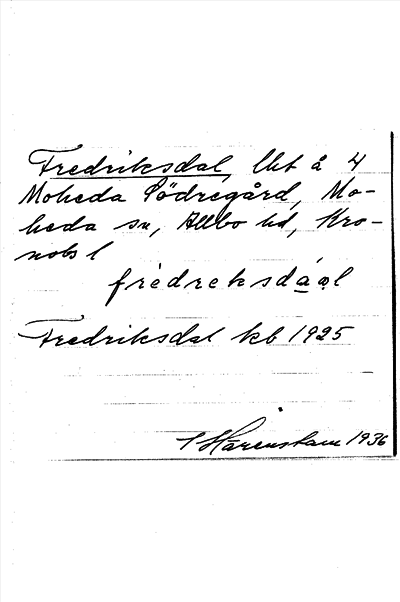 Fredriksdal, lht å 4
Moheda Södregård, Mo-
heda sn, Allbo hd, Kro-
nobs l
fredreksdáal
Fredriksdal kb 1925
S Härenstam 1936